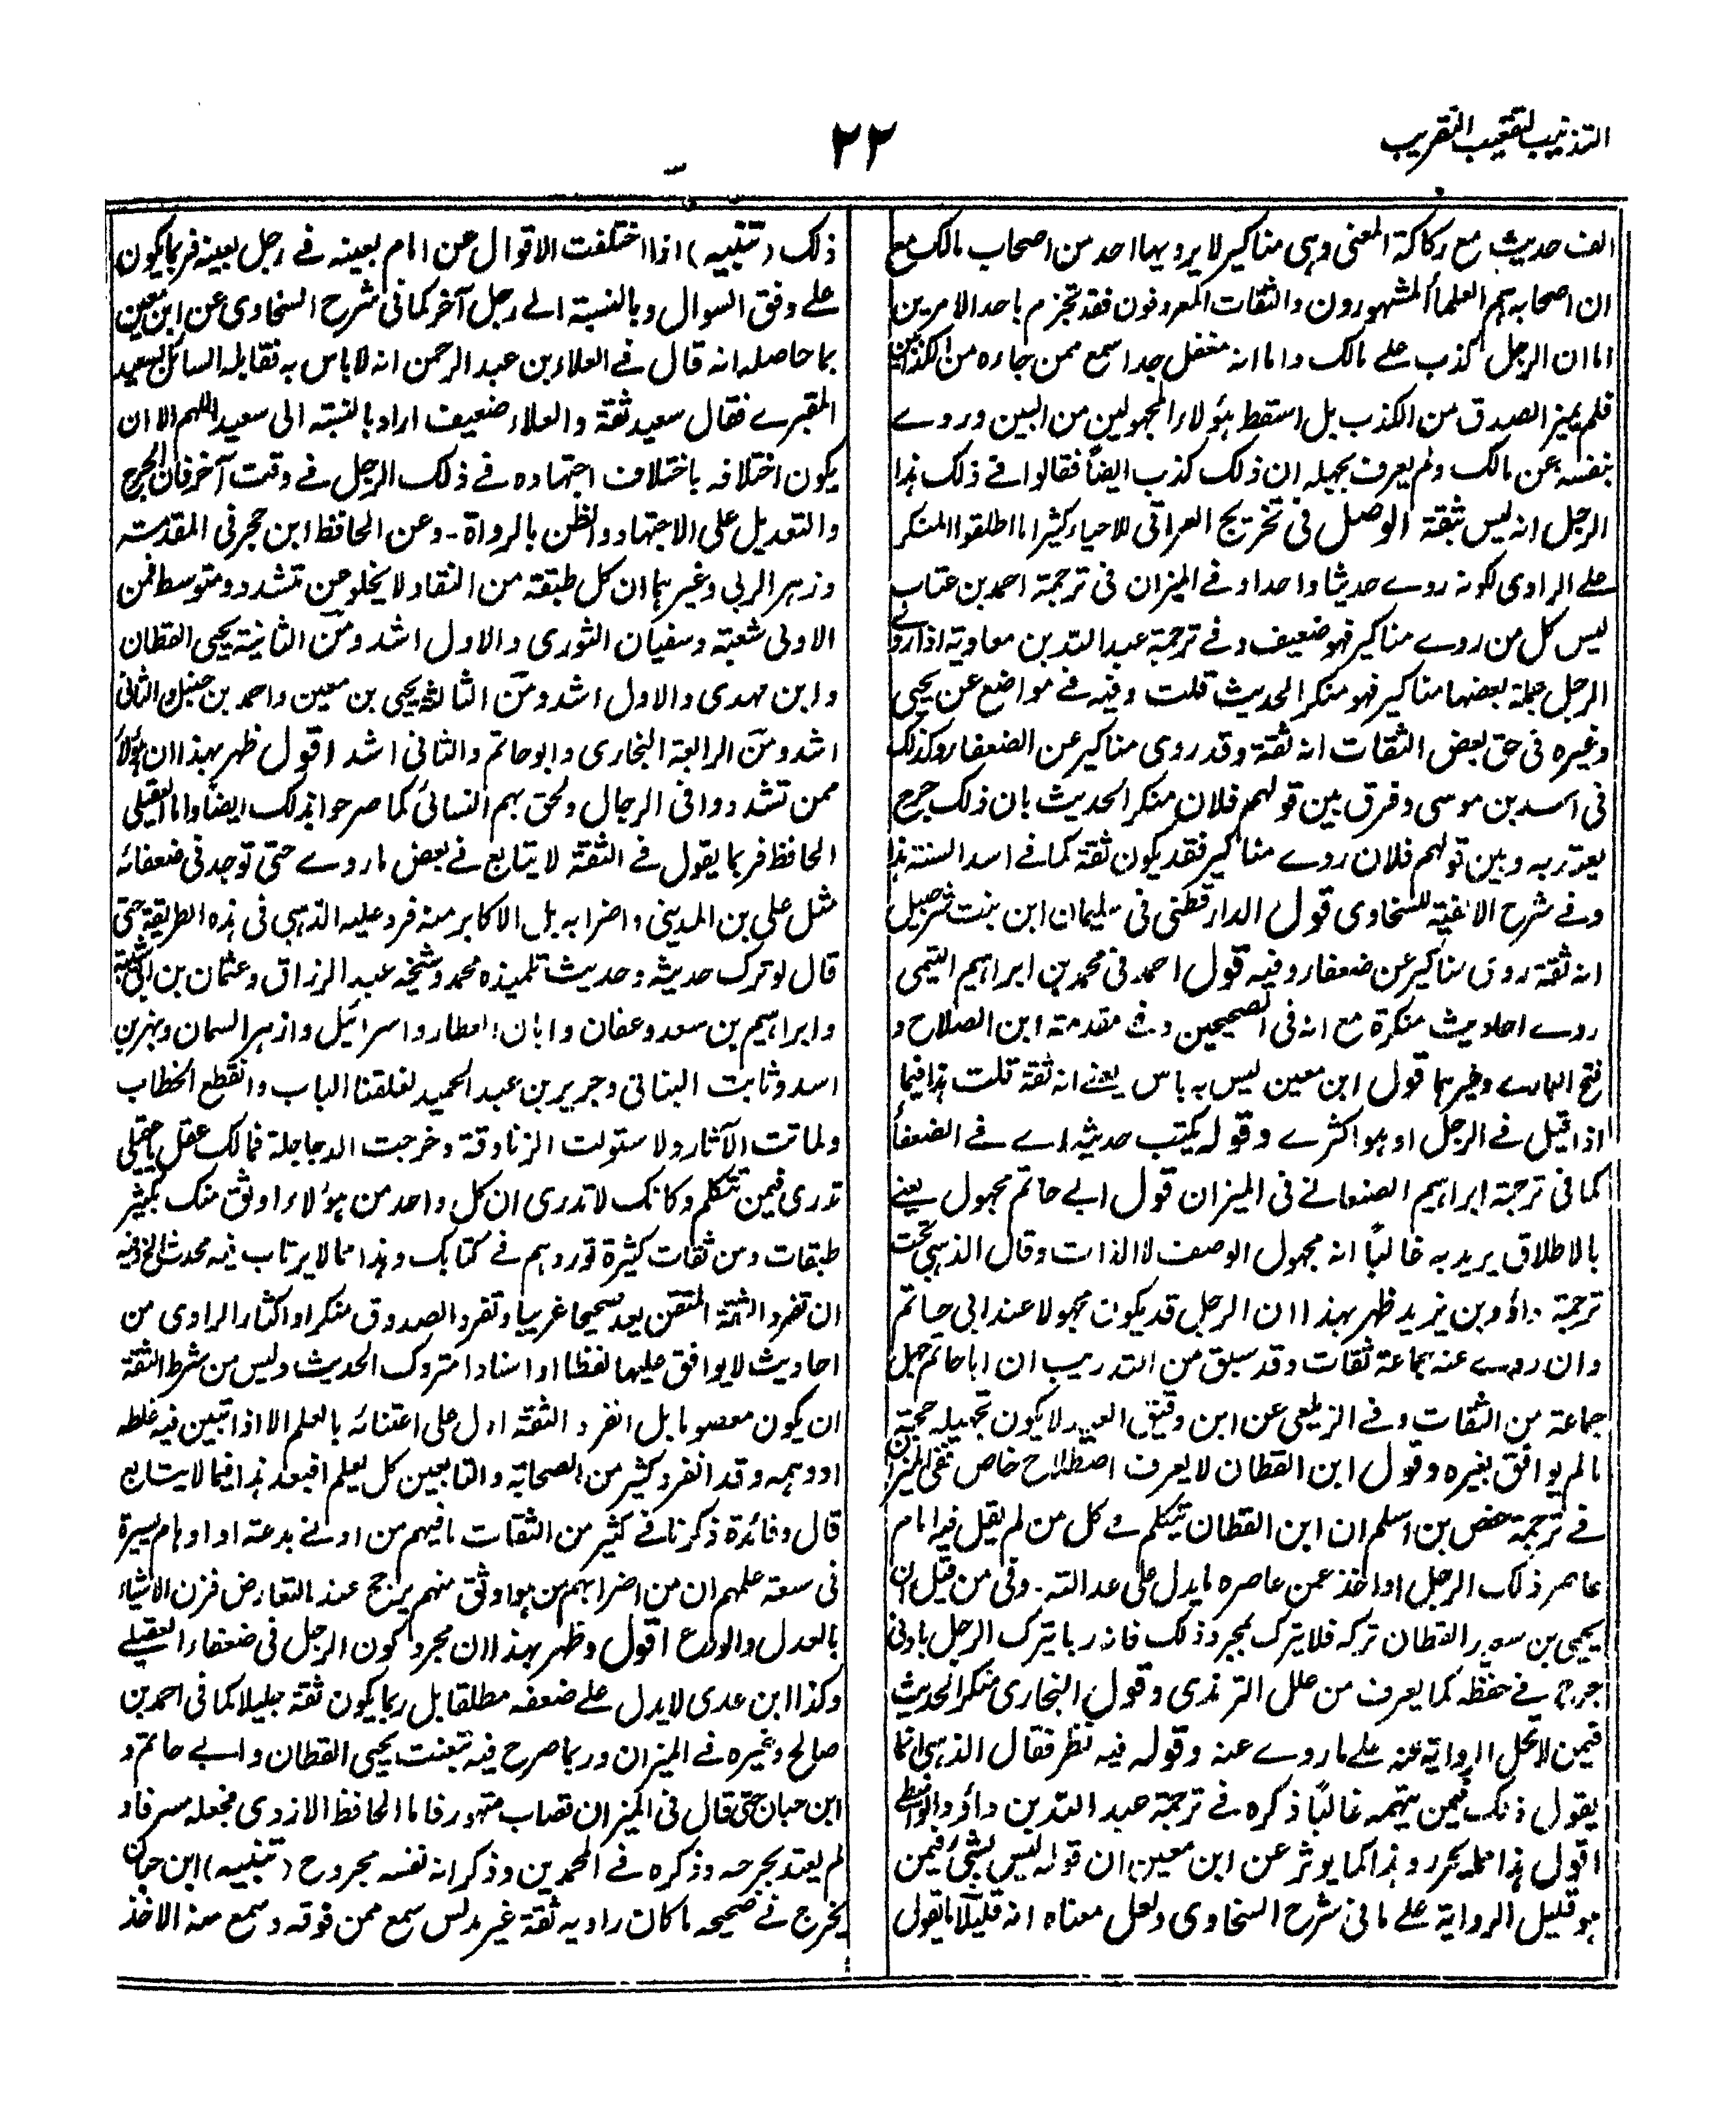 التذنيب لتعقيب التقريب
٢٢
الف حديث مع ركاكة المعنى وهى مناكير لا يرويها احد من اصحاب مالك مع
ان اصحابه هم العلماء المشهورون والثقات المعروفون فقد تجزم باحد الامرين
اما ان الرجل كذب على مالك واما انه مغفل جدا سمع ممن جاءه من الكذابين
فلم يميز الصدق من الكذب بل اسقط هؤلاء المجهولين من البين وروے
بنفسه عن مالك ولم يعرف بجهله ان ذلك كذب ايضاً فقالوا فے ذلك هذا
الرجل انه ليس بثقة الوصل فى تخريج العراقى للاحياء كثيرا ما اطلقوا المنكر
علے الراوى لكونه روے حديثا واحدا وفے الميزان فى ترجمة احمد بن عتاب
ليس كل من روے مناكير فهو ضعيف وفے ترجمة عبد الله بن معاوية اذا روى
الرجل جملة بعضها مناكير فهو منكر الحديث قلت وفيه فے مواضع عن يحيى
وغيره فى حق بعض الثقات انه ثقة وقد روى مناكير عن الضعفاء وكذلك
فى اسد بن موسى وفرق بين قولهم فلان منكر الحديث بان ذلك جرح
يعتد به وبين قولهم فلان روے مناكير فقد يكون ثقة كما فے اسد السنة هذا
وفے شرح الالفية للسخاوى قول الدارقطنى فى سليمان ابن بنت شرحبيل
انه ثقة روى مناكير عن ضعفاء وفيه قول احمد فى محمد بن ابراهيم التيمى
روے احاديث منكرة مع انه فى الصحيحين وفے مقدمة ابن الصلاح و
فتح البارے وغيرهما قول ابن معين ليس به باس يعنے انه ثقة قلت هذا فيما
اذا قيل فے الرجل او هو اكثرے وقوله يكتب حديثه اے فے الضعفاء
كما فى ترجمة ابراهيم الصنعانے فى الميزان قول ابے حاتم مجهول يعنے
بالاطلاق يريد به غالباً انه مجهول الوصف لا الذات وقال الذهبى تحت
ترجمة داؤد بن يزيد ظهر بهذا ان الرجل قد يكون مجهولا عند ابى حاتم
وان روے عنه جماعة ثقات وقد سبق من التدريب ان ابا حاتم جهل
جماعة من الثقات وفے الزيلعى عن ابن دقيق العيد لا يكون تجهيله حجة
ما لم يوافق بغيره وقول ابن القطان لا يعرف اصطلاح خاص ففى الميزان
فے ترجمة حفص بن اسلم ان ابن القطان يتكلم فے كل من لم يقل فيه امام
عاصر ذلك الرجل او اخذ عمن عاصره ما يدل على عدالته - وفى من قيل ان
يحيى بن سعيد القطان تركه فلا يترك بمجرد ذلك فانه ربما يترك الرجل بادنى
جرح فے حفظه كما يعرف من علل الترمذى وقول البخارى منكر الحديث
فيمن لا تحل الرواية عنه علے ما روے عنه وقوله فيه نظر فقال الذهبى انما
يقول ذلك فيمن يتهمه غالباً ذكره فے ترجمة عبد الله بن داؤد الواسطى
اقول هذا كله يحرر وهذا كما يوثر عن ابن معين ان قوله ليس بشئ فيمن
هو قليل الرواية علے ما فى شرح السخاوى ولعل معناه انه قليلا ما يقول
ذلك (تنبيه) اذا اختلفت الاقوال عن امام بعينه فے رجل بعينه فربما يكون
علے وفق السوال وبالنسبة الے رجل آخر كما فى شرح السخاوى عن ابن معين
بما حاصله انه قال فے العلاء بن عبد الرحمن انه لا باس به فقابله السائل بسعيد
المقبرے فقال سعيد ثقة والعلاء ضعيف اراد بالنسبة الى سعيد اللهم الا ان
يكون اختلافه باختلاف اجتهاده فے ذلك الرجل فے وقت آخر فان الجرح
والتعديل على الاجتهاد والظن بالرواة - وعن الحافظ ابن حجر فى المقدمة
وزهر الربى وغيرهما ان كل طبقة من النقاد لا يخلو عن تشدد ومتوسط فمن
الاولى شعبة وسفيان الثورى والاول اشد ومن الثانية يحيى القطان
وابن مهدى والاول اشد ومن الثالثة يحيى بن معين واحمد بن حنبل والثانى
اشد ومن الرابعة البخارى وابو حاتم والثانى اشد اقول ظهر بهذا ان هؤلاء
ممن تشددوا فى الرجال ولحق بهم النسائى كما صرحوا بذلك ايضاً واما العقيلى
الحافظ فربما يقول فے الثقة لا يتابع فے بعض ما روے حتى توجد فى ضعفائه
مثل على بن المدينى واضرابه بل الاكابر منه فرد عليه الذهبى فى هذه الطريقة حتى
قال لو ترك حديثه وحديث تلميذه محمد وشيخه عبد الرزاق وعثمان بن ابى شيبة
وابراهيم بن سعد وعفان وابان العطار واسرائيل وازهر السمان وبهز بن
اسد وثابت البنانى وجرير بن عبد الحميد لغلقنا الباب وانقطع الخطاب
ولماتت الآثار ولاستولت الزنادقة وخرجت الدجاجلة فمالك عقل يا عقيلى
تدرى فيمن تتكلم وكانك لا تدرى ان كل واحد من هؤلاء اوثق منك بكثير
طبقات ومن ثقات كثيرة توردهم فے كتابك وهذا مما لا يرتاب فيه محدث الخ وفيه
ان تفرد الثقة المتقن يعد صحيحا غريبا وتفرد الصدوق منكرا واكثار الراوى من
احاديث لا يوافق عليها لفظا او اسنادا متروك الحديث وليس من شرط الثقة
ان يكون معصوما بل انفرد الثقة ادل على اعتنائه بالعلم الا اذا تبين فيه غلطه
او وهمه وقد انفرد كثير من الصحابة والتابعين كل بعلم افيعد هذا فيما لا يتابع
قال وفائدة ذكرنا فے كثير من الثقات ما فيهم من ادنے بدعة او اوهام يسيرة
فى سعة علمهم ان من اضرابهم من هو اوثق منهم يرجح عند التعارض فزن الاشياء
بالعدل والورع اقول وظهر بهذا ان مجرد كون الرجل فى ضعفاء العقيلے
وكذا ابن عدى لا يدل علے ضعفه مطلقا بل ربما يكون ثقة جليلا كما فى احمد بن
صالح وغيره فے الميزان وربما صرح فيه بتعنت يحيى القطان وابے حاتم و
ابن حبان حتى قال فى الميزان قصاب متهور فاما الحافظ الازدى فجعله مسرفا و
لم يعتد بجرحه وذكره فے المحمدين وذكر انه نفسه مجروح (تنبيه) ابن حبان
يخرج فے صحيحه ما كان راويه ثقة غير مدلس سمع ممن فوقه وسمع منه الاخذ